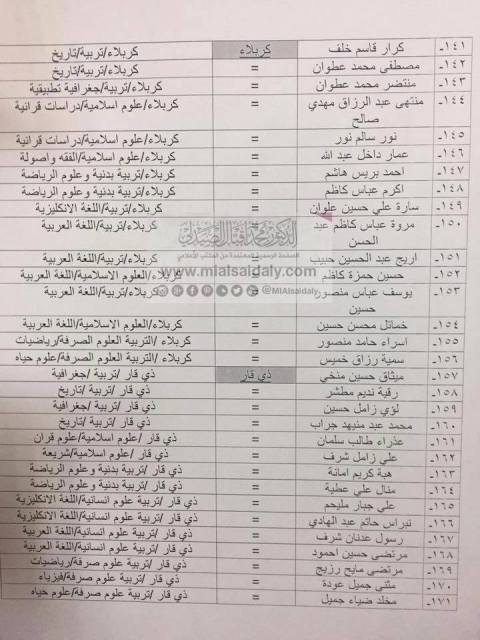 ١٤١- كرار قاسم خلف كربلاء كربلاء/تربية/تاريخ
١٤٢- مصطفى محمد عطوان = كربلاء/تربية/تاريخ
١٤٣- منتضر محمد عطوان = كربلاء/تربية/جغرافية تطبيقية
١٤٤- منتهى عبد الرزاق مهدي = كربلاء/علوم اسلامية/دراسات قرانية
صالح
١٤٥- نور سالم نور = كربلاء/علوم اسلامية/دراسات قرانية
١٤٦- عمار داخل عبد الله = كربلاء/علوم اسلامية/الفقه واصولة
١٤٧- احمد بريس هاشم = كربلاء/تربية بدنية وعلوم الرياضة
١٤٨- اكرم عباس كاظم = كربلاء/تربية بدنية وعلوم الرياضة
١٤٩- سارة علي حسين علوان = كربلاء/تربية/اللغة الانكليزية
١٥٠- مروة عباس كاظم عبد = كربلاء/تربية/اللغة العربية
الحسن
١٥١- اريج عبد الحسين حبيب = كربلاء/تربية/اللغة العربية
www.mlalsaldaly.com
١٥٢- حسين حمزة كاظم = كربلاء/العلوم الاسلامية/اللغة العربية
١٥٣- يوسف عباس منصور كربلاء/تربية/اللغة العربية
@MlAlsaldaly
حسين
١٥٤- خمائل محسن حسين = كربلاء/العلوم الاسلامية/اللغة العربية
١٥٥- اسراء حامد منصور = كربلاء /التربية العلوم الصرفة/رياضيات
١٥٦- سمية رزاق خميس = كربلاء /التربية العلوم الصرفة/علوم حياه
١٥٧- ميثاق حسين منخي ذي قار ذي قار /تربية/جغرافية
١٥٨- رقية نديم مطشر = ذي قار /تربية/تاريخ
١٥٩- لؤي زامل حسين = ذي قار /تربية /جغرافية
١٦٠- محمد عبد منيهد جراب = ذي قار /تربية/تاريخ
١٦١- عذراء طالب سلمان = ذي قار /علوم اسلامية/علوم قران
١٦٢- علي زامل شرف = ذي قار /علوم اسلامية/شريعة
١٦٣- هبة كريم امانة = ذي قار /تربية بدنية و علوم الرياضة
١٦٤- منال علي عطية = ذي قار /تربية بدنية و علوم الرياضة
١٦٥- علي جبار مليحم = ذي قار /تربية علوم انسانية/اللغة الانكليزية
١٦٦- نبراس حاتم عبد الهادي = ذي قار /تربية علوم انسانية/اللغة الانكليزية
١٦٧- رسول عدنان شرف = ذي قار /تربية علوم انسانية/اللغة العربية
١٦٨- مرتضى حسين احمود = ذي قار /تربية علوم انسانية/اللغة العربية
١٦٩- مرتضى مايح رزيج = ذي قار /تربية علوم صرفة/رياضيات
١٧٠- مثنى جميل عودة = ذي قار /تربية علوم صرفة/فيزياء
١٧١- مخلد ضياء جميل = ذي قار /تربية علوم صرفة/علوم حياه